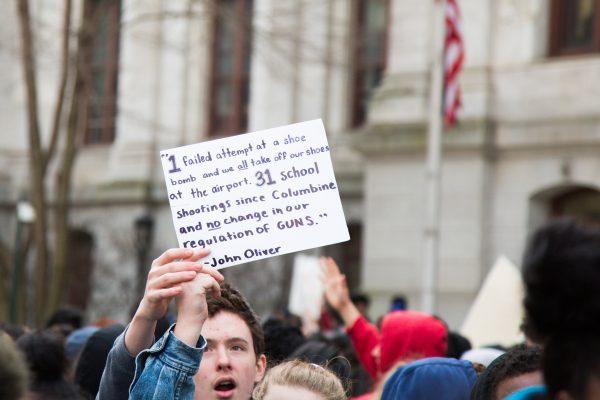 "1 failed attempt at a shoe
bomb and we all take off our shoes
at the airport. 31 school
shootings since Columbine
and no change in our
regulation of GUNS."
-John Oliver